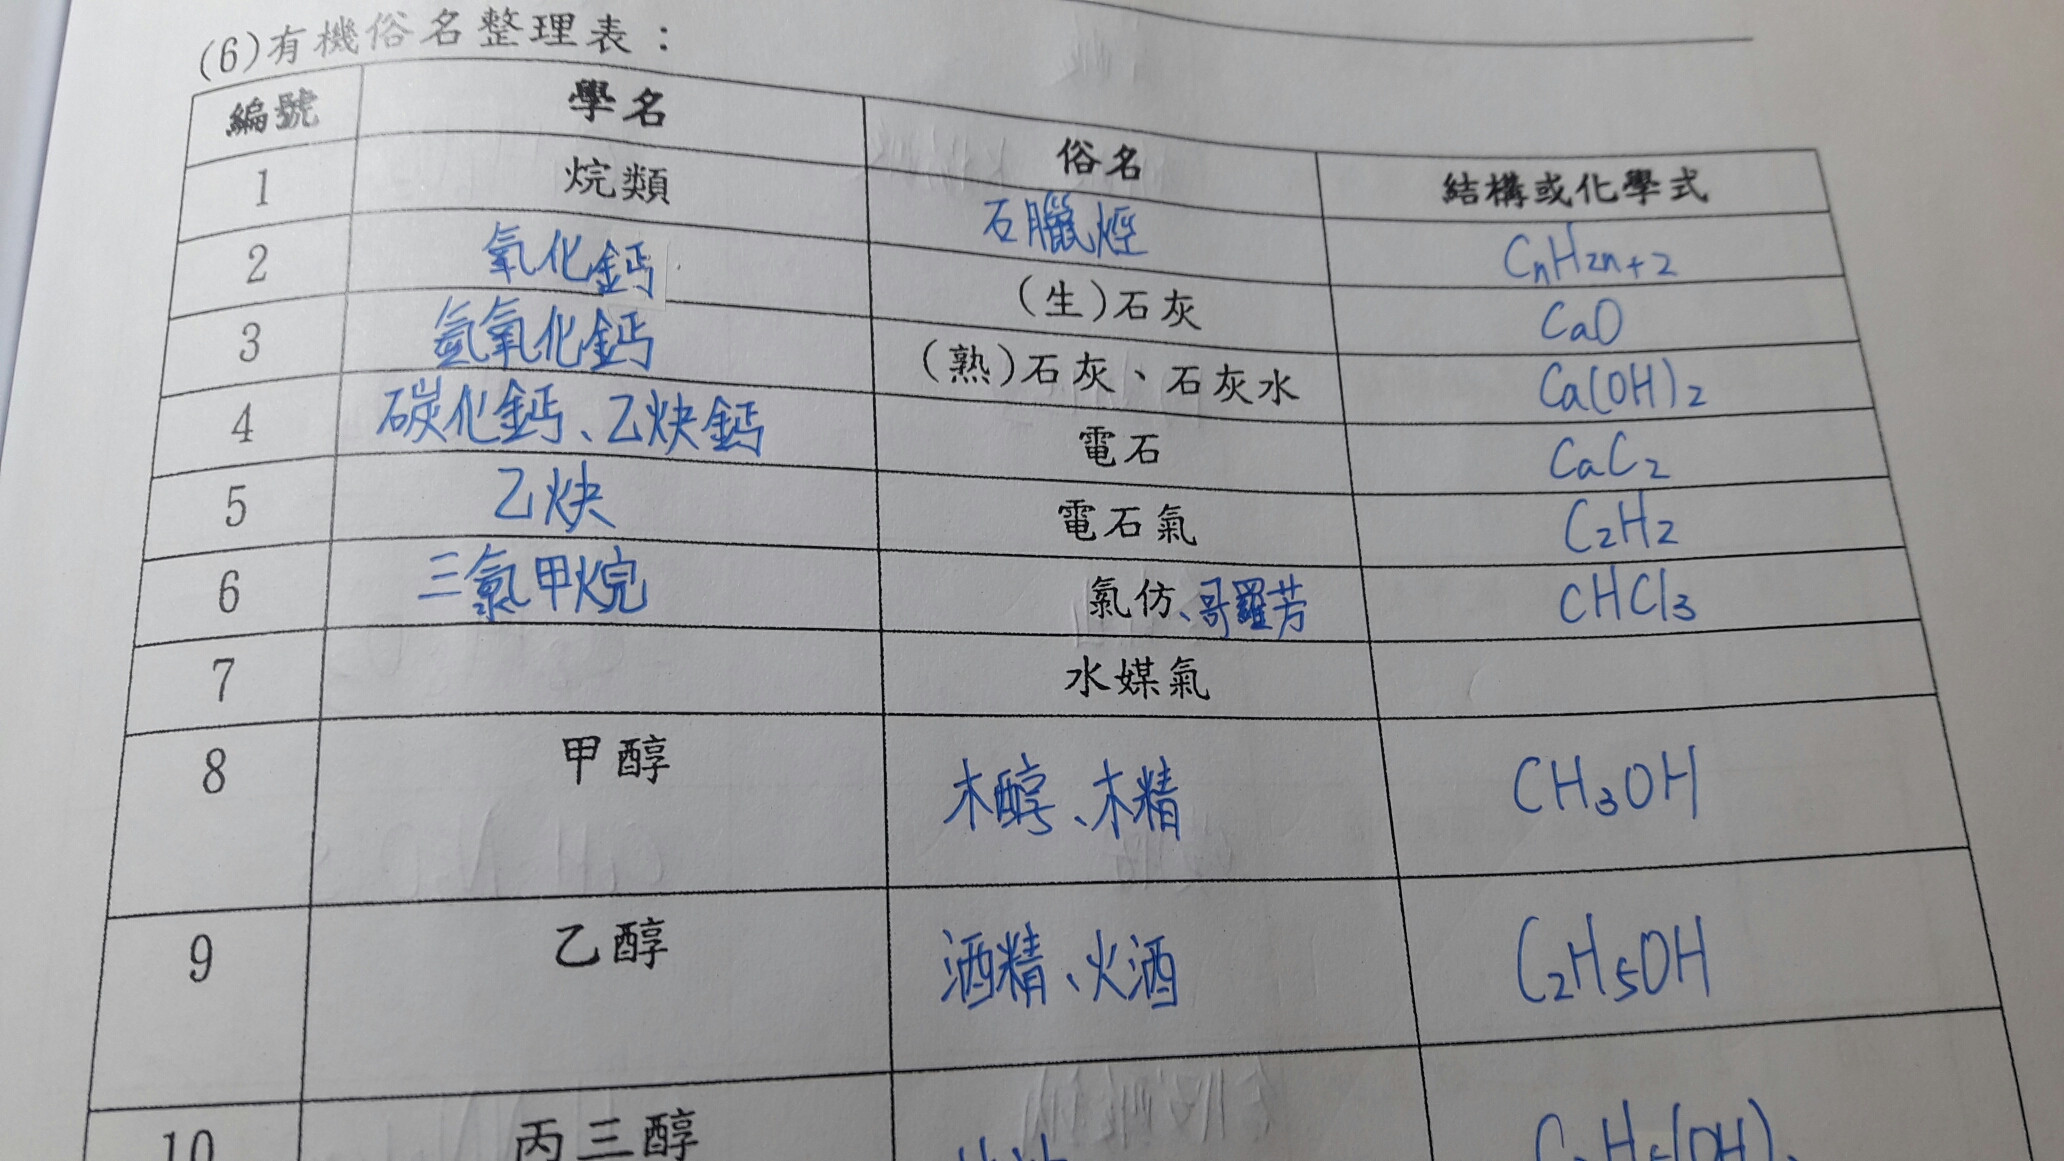 (6)有機俗名整理表：
編號 學名 俗名 結構或化學式
1 烷類 石臘烴 CnH2n+2
2 氧化鈣 (生)石灰 CaO
3 氫氧化鈣 (熟)石灰、石灰水 Ca(OH)2
4 碳化鈣、乙炔鈣 電石 CaC2
5 乙炔 電石氣 C2H2
6 三氯甲烷 氯仿、哥羅芳 CHCl3
7 水媒氣
8 甲醇 木醇、木精 CH3OH
9 乙醇 酒精、火酒 C2H5OH
10 丙三醇